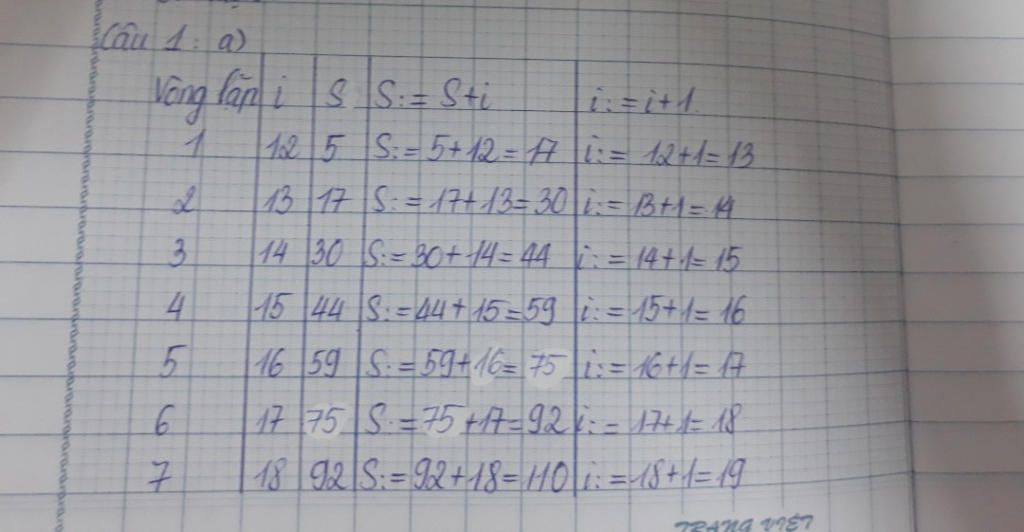 Câu 1: a)
Vòng lặp i S S:= S+i i:=i+1.
1 12 5 S:= 5+12=17 i:= 12+1=13
2 13 17 S:= 17+13=30 i:= 13+1=14
3 14 30 S:=30+14=44 i:= 14+1=15
4 15 44 S:=44+15=59 i:= 15+1= 16
5 16 59 S:= 59+16= 75 i:= 16+1= 17
6 17 75 S:= 75+17=92 i:= 17+1=18
7 18 92 S:=92+18=110 i:=18+1=19
TRANG VIẾT